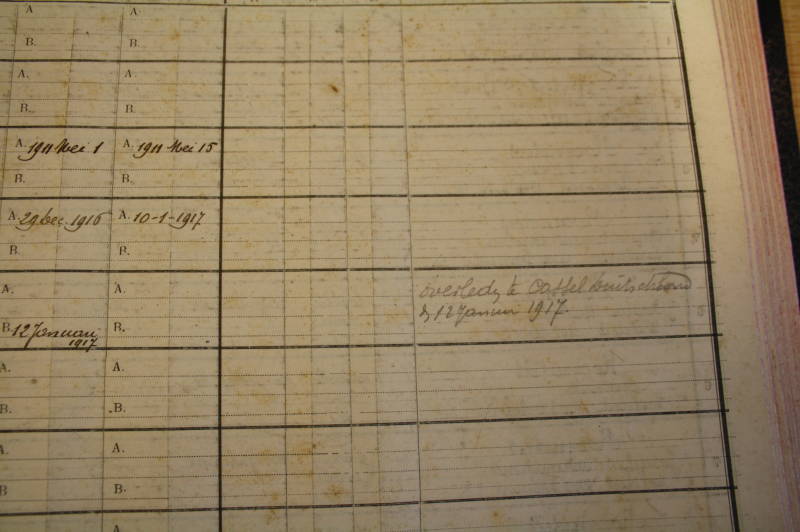 A. A.
B. B.
A. A.
B. B.
A. 1911 Mei 1 A. 1911 Mei 15
B. B.
A. 29 Dec. 1916 A. 10-1-1917
B. B.
A. A. overleden te Cassel Duitschland
B. 12 Januari B. 12 Januari 1917.
1917
A. A.
B. B.
A. A.
B. B.
A.